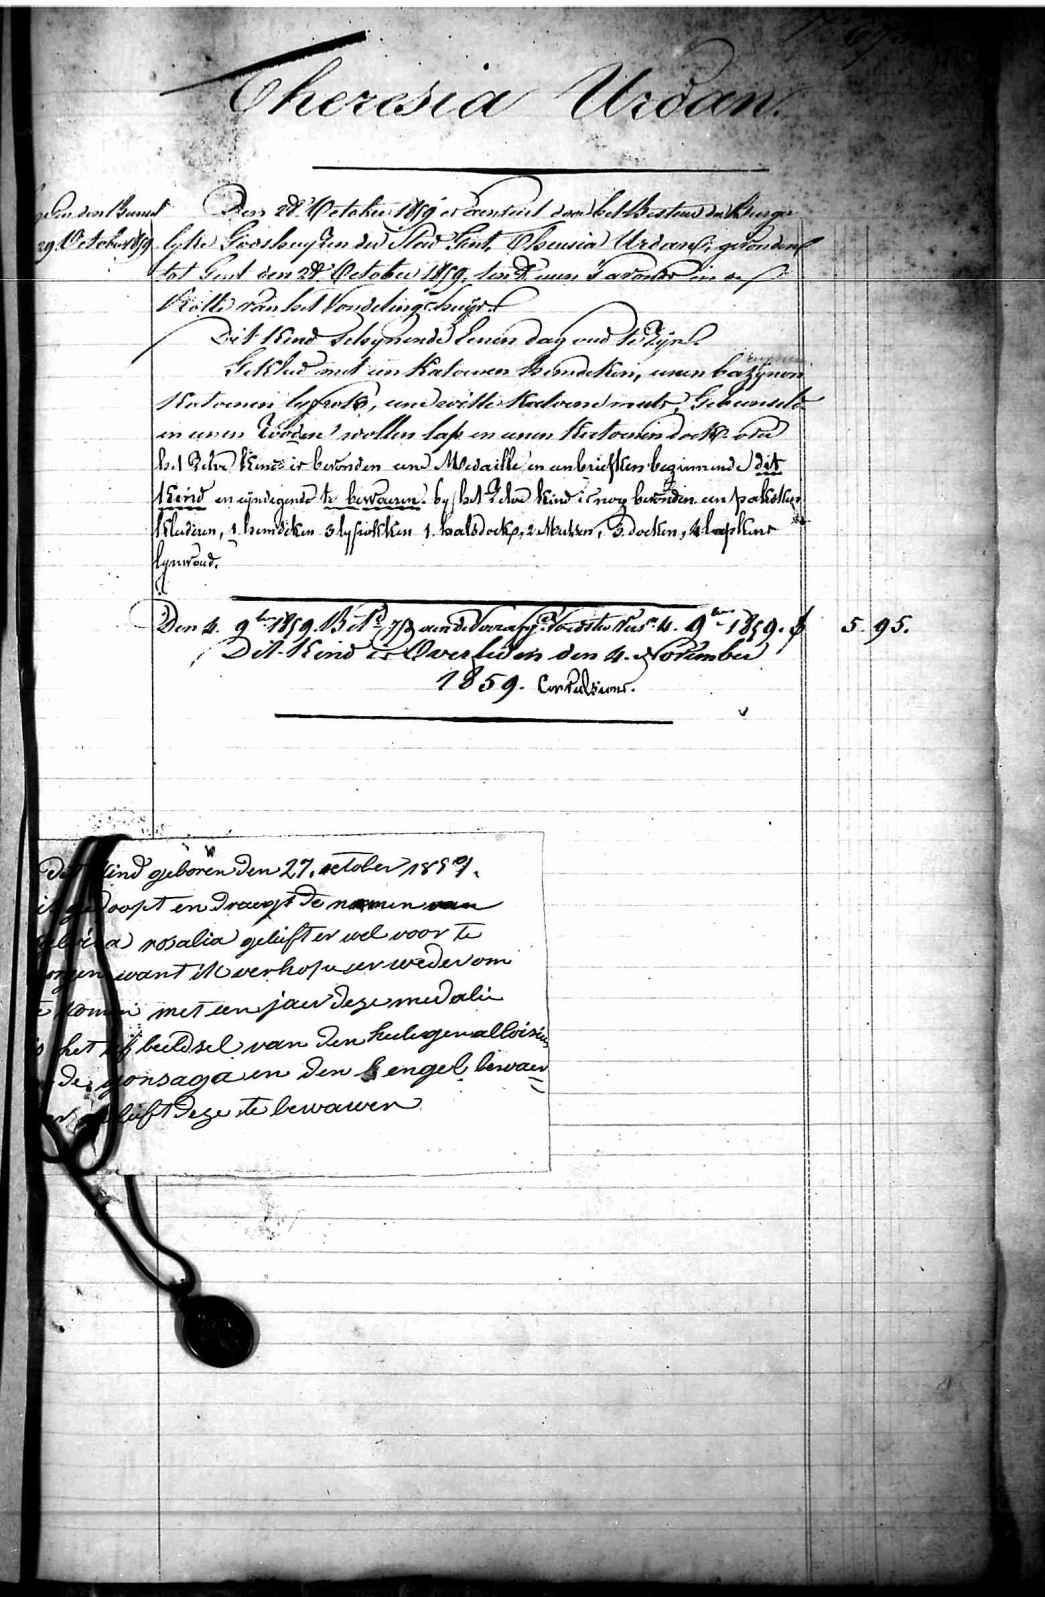 Theresia Urdan.
29 October 1859
Den 28 October 1859 is aenveird door het Bestuer der Burger-
lyke Godshuyzen der Stad Gent, Theresia Urdan, gevonden
tot Gent den 28 October 1859, ten uren 's avonds in de
Rolle van het Vondelingshuys.
Dit Kind schynende eenen dag oud te zyn.
Gekleed met een Katoenen hemdeken, eenen bazynen
Katoenen lyfrok, eene witte Katoene muts, Gebunseld
in eenen rooden wollen lap en eenen Katoenen doek. Op
het zelve Kind is bevonden eene Medaille en een briefken beginnende dit
Kind en eyndigende te bewaeren. by het zelve Kind is nog bevonden een pakxken
kleederen, 1 hemdeken 3 lyfrokken 1. halsdoek, 2 Mutsen, 3 doeken, 4 lapkens
lynwaed.
Den 4. 9ber 1859. Bet. aen de Voedster 4. 9ber 1859. f 5-95.
Dit Kind is Overleden den 4. November
1859. Convulsions.
Dit kind geboren den 27. october 1859.
is gedoopt en draegt de namen van
rosalia gelieft er wel voor te
zorgen want ik verhope er wederom
te komen met een jaer deze medalie
is het afbeeldsel van den heiligen alloisius
de gonsaga en den engel bewaer
der gelieft deze te bewaeren